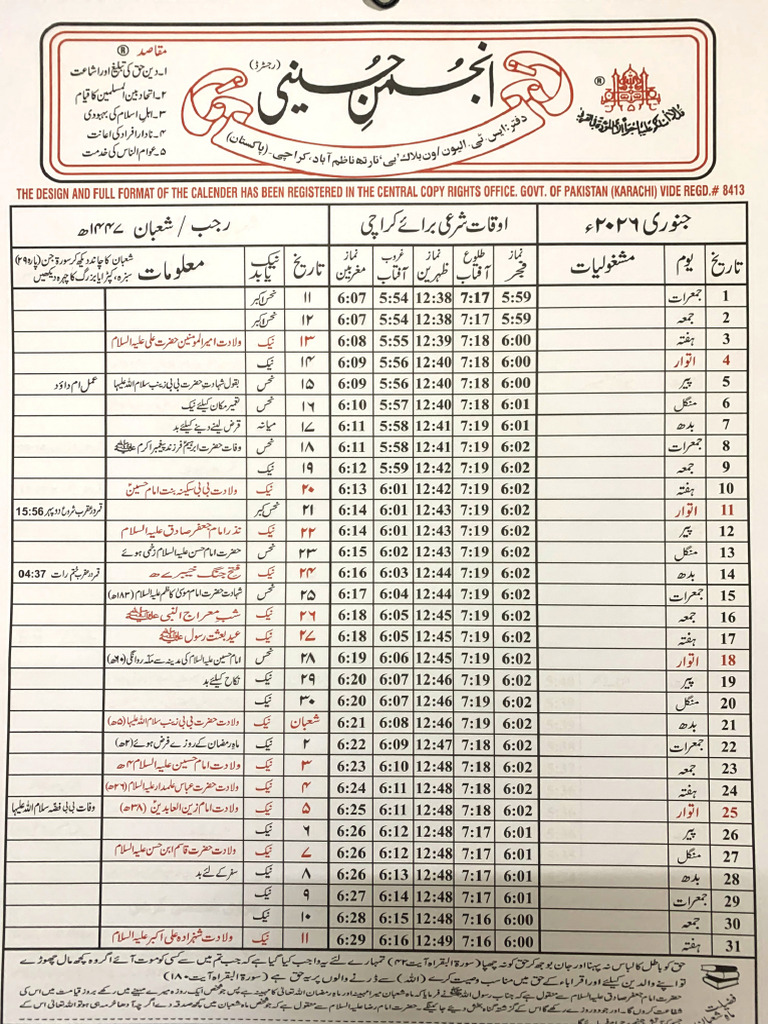 مقاصد ®
۱۔ دین حق کی تبلیغ اور اشاعت
۲۔ اتحاد بین المسلمین کا قیام
۳۔ اہل اسلام کی بہبودی
۴۔ نادار افراد کی اعانت
۵۔ عوام الناس کی خدمت
انجمن حسینی (رجسٹرڈ)
دفتر: ایس ۔ ٹی ۔ الیون اون بلاک 'بی' نارتھ ناظم آباد، کراچی ۔ (پاکستان)
®
THE DESIGN AND FULL FORMAT OF THE CALENDER HAS BEEN REGISTERED IN THE CENTRAL COPY RIGHTS OFFICE. GOVT. OF PAKISTAN (KARACHI) VIDE REGD.# 8413
جنوری ۲۰۲۶ء اوقات شرعی برائے کراچی رجب / شعبان ۱۴۴۷ھ
تاریخ یوم مشغولیات نماز فجر طلوع آفتاب نماز ظہرین غروب آفتاب نماز مغربین تاریخ نیک یا بد معلومات شعبان کا چاند دیکھ کر سورۃ جن (پارہ ۲۹) سبزہ، کپڑا یا بزرگ کا چہرہ دیکھیں
1 جمعرات 5:59 7:17 12:38 5:54 6:07 ۱۱ نحس اکبر
2 جمعہ 5:59 7:18 12:38 5:54 6:07 ۱۲ نحس اکبر
3 ہفتہ 6:00 7:18 12:39 5:55 6:08 ۱۳ نیک ولادت امیر المؤمنین حضرت علی علیہ السلام
4 اتوار 6:00 7:18 12:40 5:56 6:09 ۱۴ نیک
5 پیر 6:00 7:18 12:40 5:56 6:09 ۱۵ نحس بقول شہادت حضرت بی بی زینب سلام اللہ علیہا عمل ام داؤد
6 منگل 6:01 7:18 12:40 5:57 6:10 ۱۶ نحس تعمیر مکان کیلئے نیک
7 بدھ 6:01 7:19 12:41 5:58 6:11 ۱۷ میانہ قرض لینے دینے کیلئے بد
8 جمعرات 6:02 7:19 12:41 5:58 6:11 ۱۸ نحس وفات حضرت ابراہیم فرزند پیغمبر اکرم ﷺ
9 جمعہ 6:02 7:19 12:42 5:59 6:12 ۱۹ نیک
10 ہفتہ 6:02 7:19 12:42 6:01 6:13 ۲۰ نیک ولادت بی بی سکینہ بنت امام حسینؑ
11 اتوار 6:02 7:19 12:43 6:01 6:14 ۲۱ نحس اکبر قمر در عقرب شروع دوپہر 15:56
12 پیر 6:02 7:19 12:43 6:01 6:14 ۲۲ نیک نذر امام جعفر صادق علیہ السلام
13 منگل 6:02 7:19 12:43 6:02 6:15 ۲۳ نحس حضرت امام حسن علیہ السلام زخمی ہوئے
14 بدھ 6:02 7:19 12:44 6:03 6:16 ۲۴ نیک فتح جنگ خیبر ۷ھ قمر در عقرب ختم رات 04:37
15 جمعرات 6:02 7:19 12:44 6:04 6:17 ۲۵ نحس شہادت حضرت امام موسیٰ کاظم علیہ السلام (۱۸۳ھ)
16 جمعہ 6:02 7:19 12:45 6:05 6:18 ۲۶ نیک شب معراج النبی ﷺ
17 ہفتہ 6:02 7:19 12:45 6:05 6:18 ۲۷ نیک عید بعثت رسول ﷺ
18 اتوار 6:02 7:19 12:45 6:06 6:19 ۲۸ نحس امام حسین علیہ السلام کی مدینہ سے مکہ روانگی (۶۰ھ)
19 پیر 6:02 7:19 12:46 6:07 6:20 ۲۹ نیک نکاح کیلئے بد
20 منگل 6:02 7:19 12:46 6:07 6:20 ۳۰ نیک
21 بدھ 6:02 7:19 12:46 6:08 6:21 شعبان نیک ولادت حضرت بی بی زینب سلام اللہ علیہا (۵ھ)
22 جمعرات 6:02 7:18 12:47 6:09 6:22 ۲ نیک ماہ رمضان کے روزے فرض ہوئے (۲ھ)
23 جمعہ 6:02 7:18 12:48 6:10 6:23 ۳ نیک ولادت امام حسین علیہ السلام ۴ھ
24 ہفتہ 6:02 7:18 12:48 6:11 6:24 ۴ نیک ولادت حضرت عباس علمدار علیہ السلام (۲۶ھ)
25 اتوار 6:02 7:18 12:48 6:11 6:25 ۵ نیک ولادت امام زین العابدینؑ (۳۸ھ) وفات بی بی فضہ سلام اللہ علیہا
26 پیر 6:01 7:17 12:48 6:12 6:26 ۶ نیک
27 منگل 6:01 7:17 12:48 6:12 6:26 ۷ نیک ولادت حضرت قاسم ابن حسن علیہ السلام
28 بدھ 6:01 7:17 12:48 6:13 6:26 ۸ نیک سفر کے لئے بد
29 جمعرات 6:01 7:17 12:48 6:14 6:27 ۹ نیک
30 جمعہ 6:00 7:16 12:48 6:15 6:28 ۱۰ نیک
31 ہفتہ 6:00 7:16 12:49 6:16 6:29 ۱۱ نیک ولادت شہزادہ علی اکبر علیہ السلام
حق کو باطل کا لباس نہ پہناؤ اور جان بوجھ کر حق کو نہ چھپاؤ (سورۃ البقرہ آیت ۴۲) تمہارے لئے یہ واجب کیا گیا ہے کہ جب تم میں سے کسی کو موت آئے اگر وہ کچھ مال چھوڑے
تو اپنے والدین کیلئے اور اقرباء کے حق میں مناسب وصیت کرے (اللہ) سے ڈرنے والوں پر یہ حق ہے (سورۃ البقرہ آیت ۱۸۰)